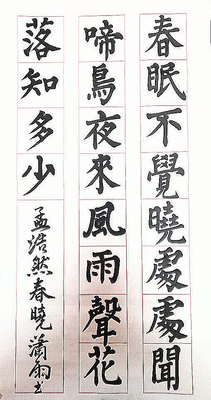 春眠不覺曉處處聞
啼鳥夜來風雨聲花
落知多少
孟浩然春曉 瀟雨書